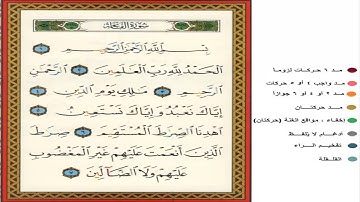 سورة الفاتحة
بسم الله الرحمن الرحيم ١
الحمد لله رب العلمين ٢ الرحمن
الرحيم ٣ ملك يوم الدين ٤
إياك نعبد وإياك نستعين ٥
اهدنا الصرط المستقيم ٦ صرط
الذين أنعمت عليهم غير المغضوب
عليهم ولا الضالين ٧
مد ٦ حركات لزوما
مد واجب ٤ أو ٥ حركات
مد ٢ أو ٤ أو ٦ جوازا
مد حركتان
إخفاء ، مواقع الغنة (حركتان)
ادغام لا يلفظ
تفخيم الراء
القلقلة